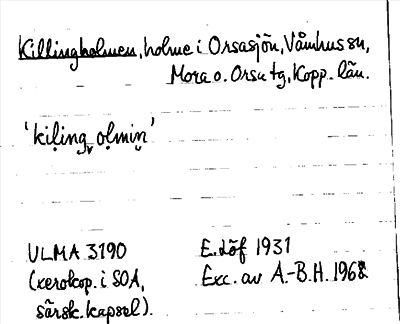 Killingholmen, holme i Orsasjön, Våmhus sn,
Mora o. Orsa tg, Kopp. län.
'kiḷing̬ oḷmin̬'
ULMA 3190
(xerokop. i SOA,
särsk. kapsel).
E. Löf 1931
Exc. av A.-B.H. 1968